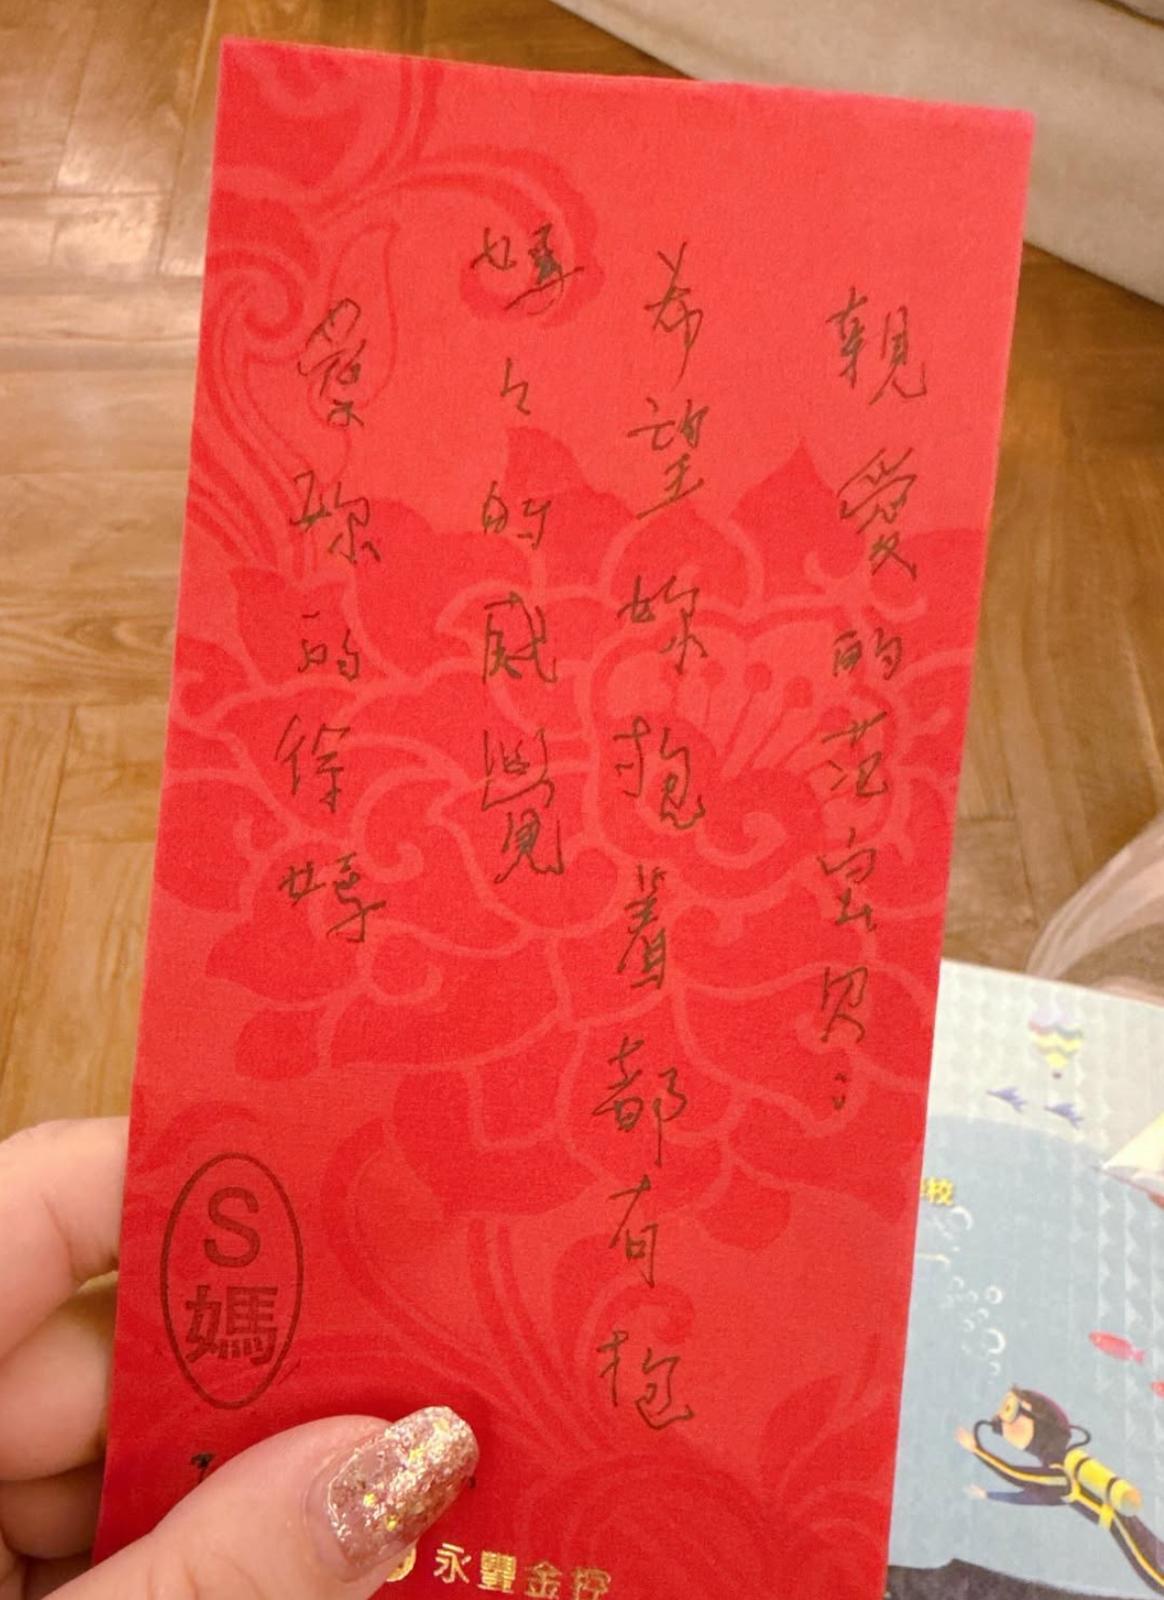 親愛的范寶貝：
希望妳抱着都有抱
媽々的感覺
愛妳的徐媽
S
媽
永豐金控
校